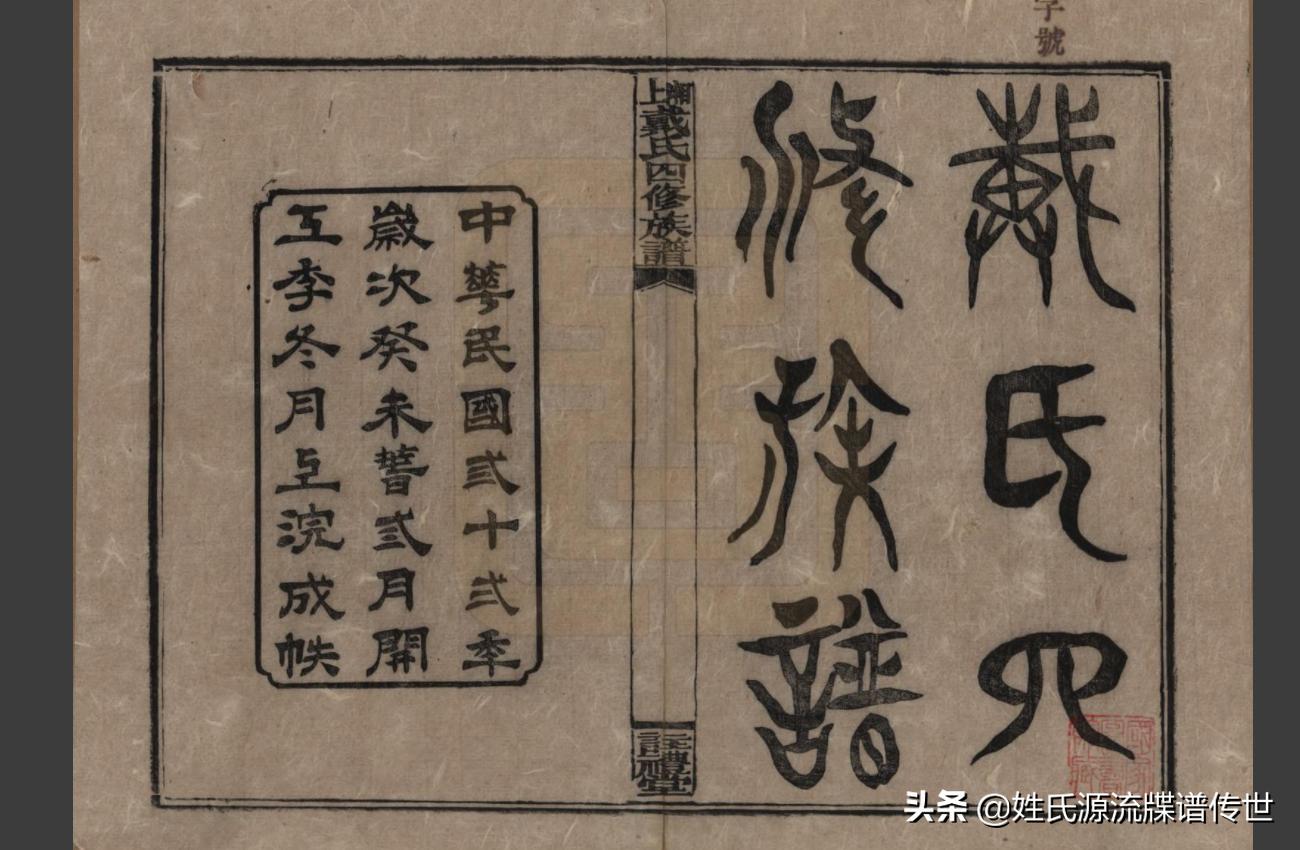 字號
戴氏四
修族譜
上湘戴氏四修族譜
註禮堂
中華民國弍十弍秊
歲次癸未弍月開
工季冬月上浣成帙
头条 @姓氏源流牒谱传世